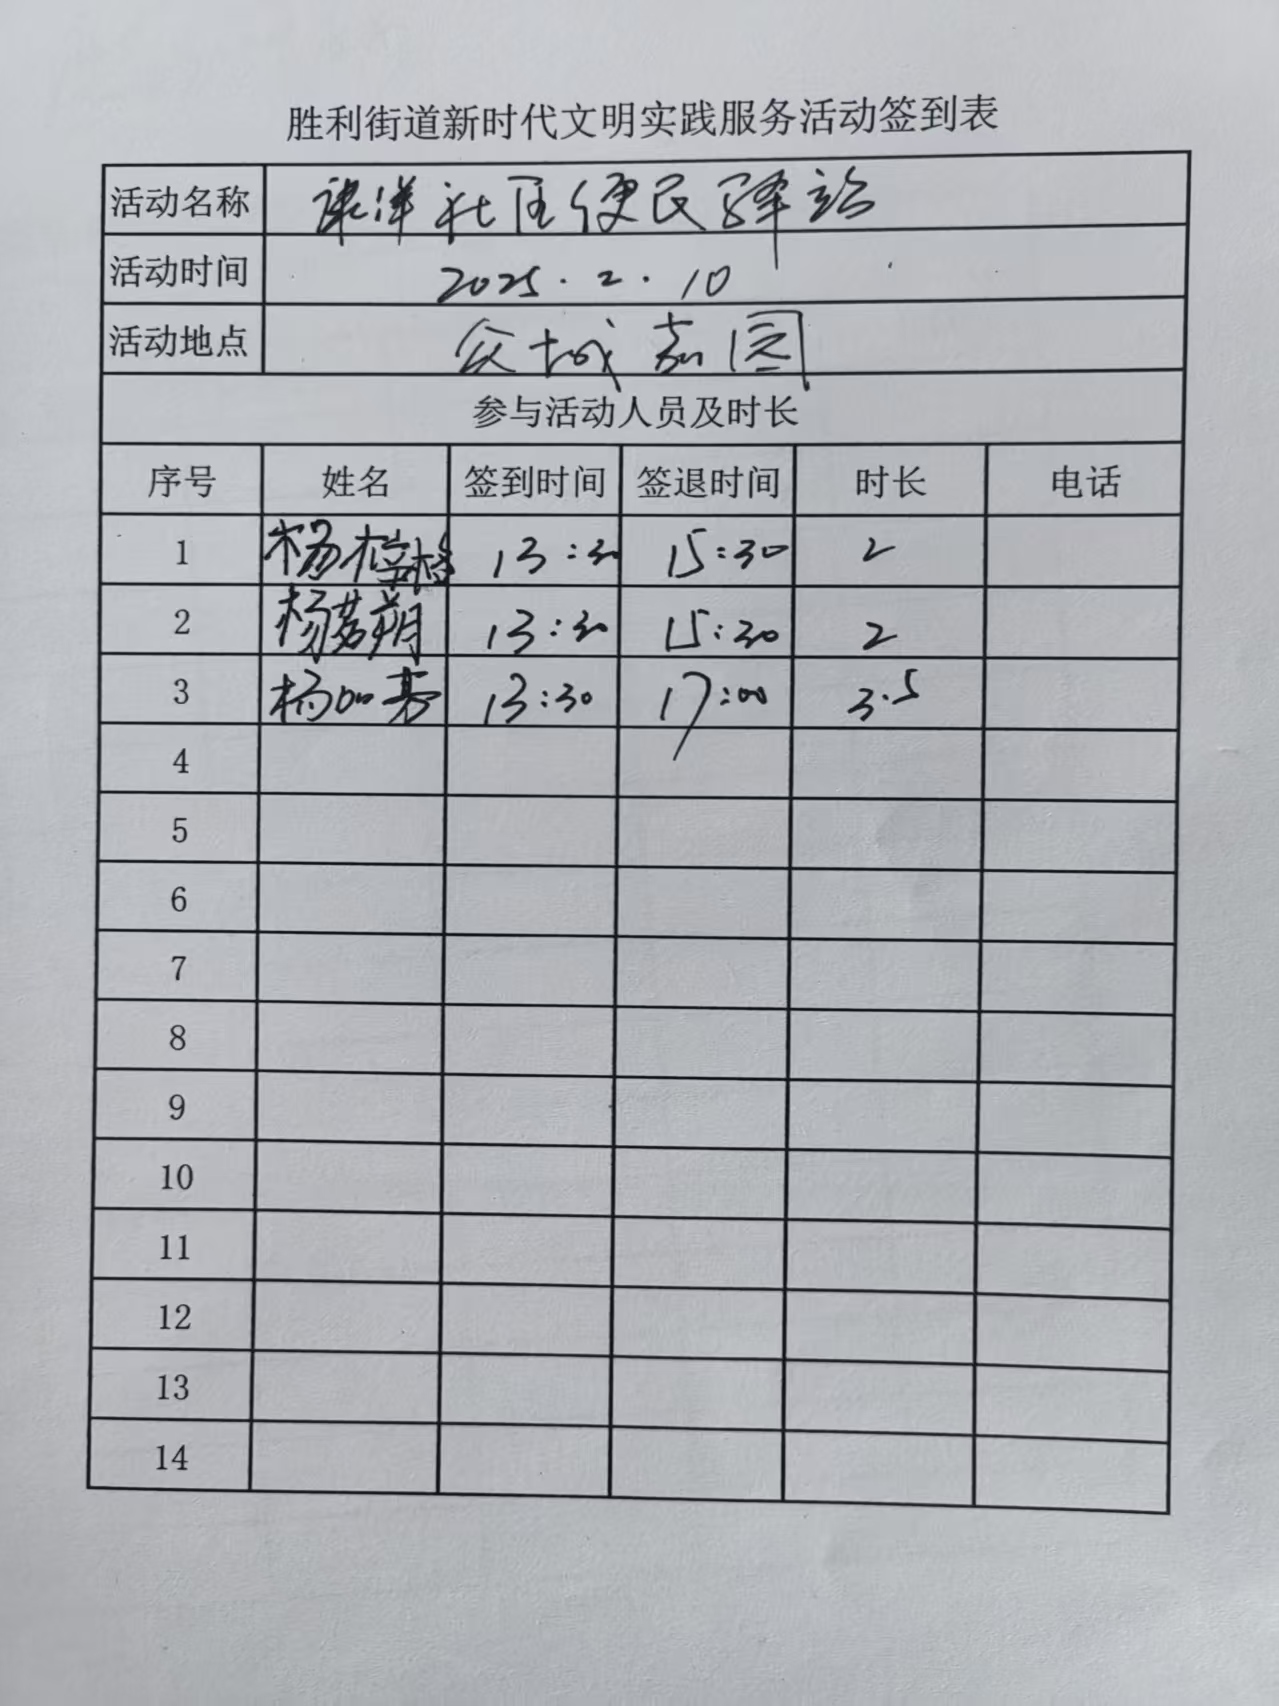 胜利街道新时代文明实践服务活动签到表
活动名称 洋社区便民驿站
活动时间 2025.2.10
活动地点 众城嘉园
参与活动人员及时长
序号 姓名 签到时间 签退时间 时长 电话
1 杨 13:30 15:30 2
2 杨若朔 13:30 15:30 2
3 杨加 13:30 17:00 3.5
4
5
6
7
8
9
10
11
12
13
14